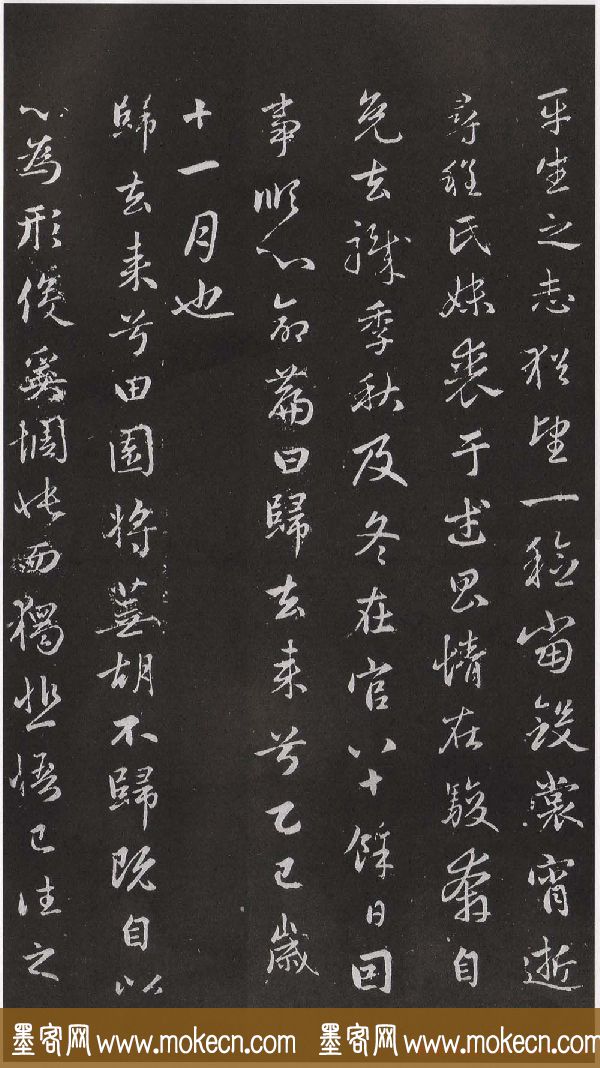 平生之志猶望一稔當斂裳宵逝
尋程氏妹喪于武昌情在駿奔自
免去職季秋及冬在官八十餘日因
事順心命篇曰歸去来兮乙巳歲
十一月也
歸去来兮田園將蕪胡不歸既自以
心為形役奚惆悵而獨悲悟已往之
墨客网 www.mokecn.com 墨客网 www.mokecn.com